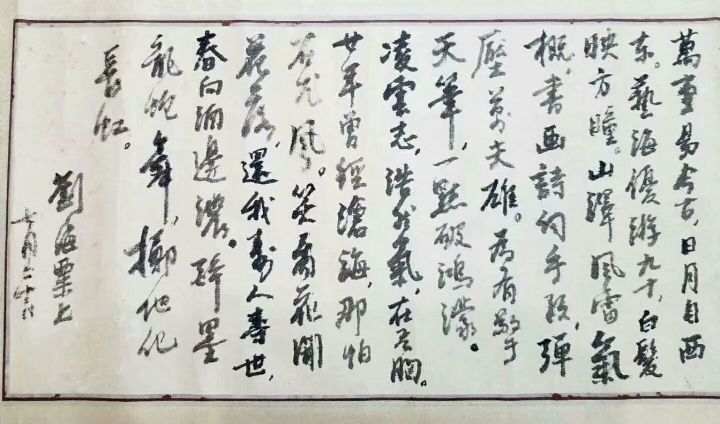 萬事易今古，日月自西
東。藝海優游九十，白髮
映方瞳。山澤風雷氣
概，書画詩詞手段，彈
壓萬夫雄。為有擎
天筆，一點破鴻濛。
凌雲志，浩然氣，在吾胸。
廿年曾經滄海，那怕
石尤風。笑看花開
花落，還我壽人壽世，
春向酒邊濃。碎墨
龍蛇舞，擲地化
長虹。
劉海粟上
七月二十六